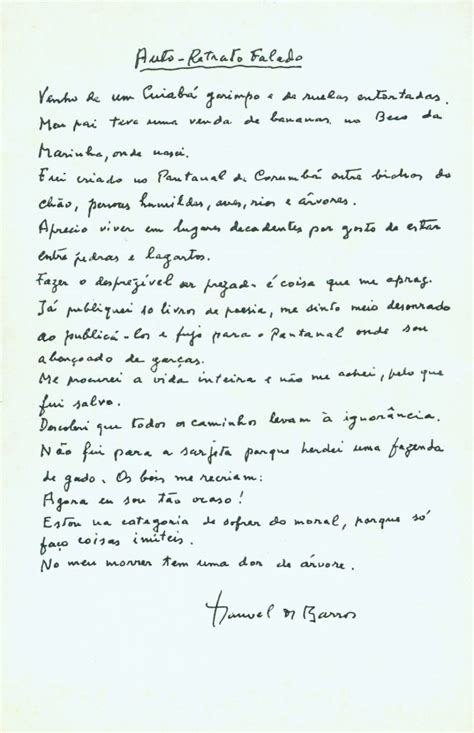 Auto-Retrato Falado
Venho de um Cuiabá garimpo e de ruelas entortadas.
Meu pai teve uma venda de bananas no Beco da
Marinha, onde nasci.
Fui criado no Pantanal de Corumbá entre bichos do
chão, pessoas humildes, aves, rios e árvores.
Aprecio viver em lugares decadentes por gosto de estar
entre pedras e lagartos.
Fazer o desprezível ser prezado é coisa que me apraz.
Já publiquei 10 livros de poesia, me sinto meio desonrado
ao publicá-los e fujo para o Pantanal onde sou
abençoado de garças.
Me procurei a vida inteira e não me achei, pelo que
fui salvo.
Descobri que todos os caminhos levam à ignorância.
Não fui para a sarjeta porque herdei uma fazenda
de gado. Os bois me recriam.
Agora eu sou tão ocaso!
Estou na categoria de sofrer do moral, porque só
faço coisas inúteis.
No meu morrer tem uma dor de árvore.
Manoel de Barros